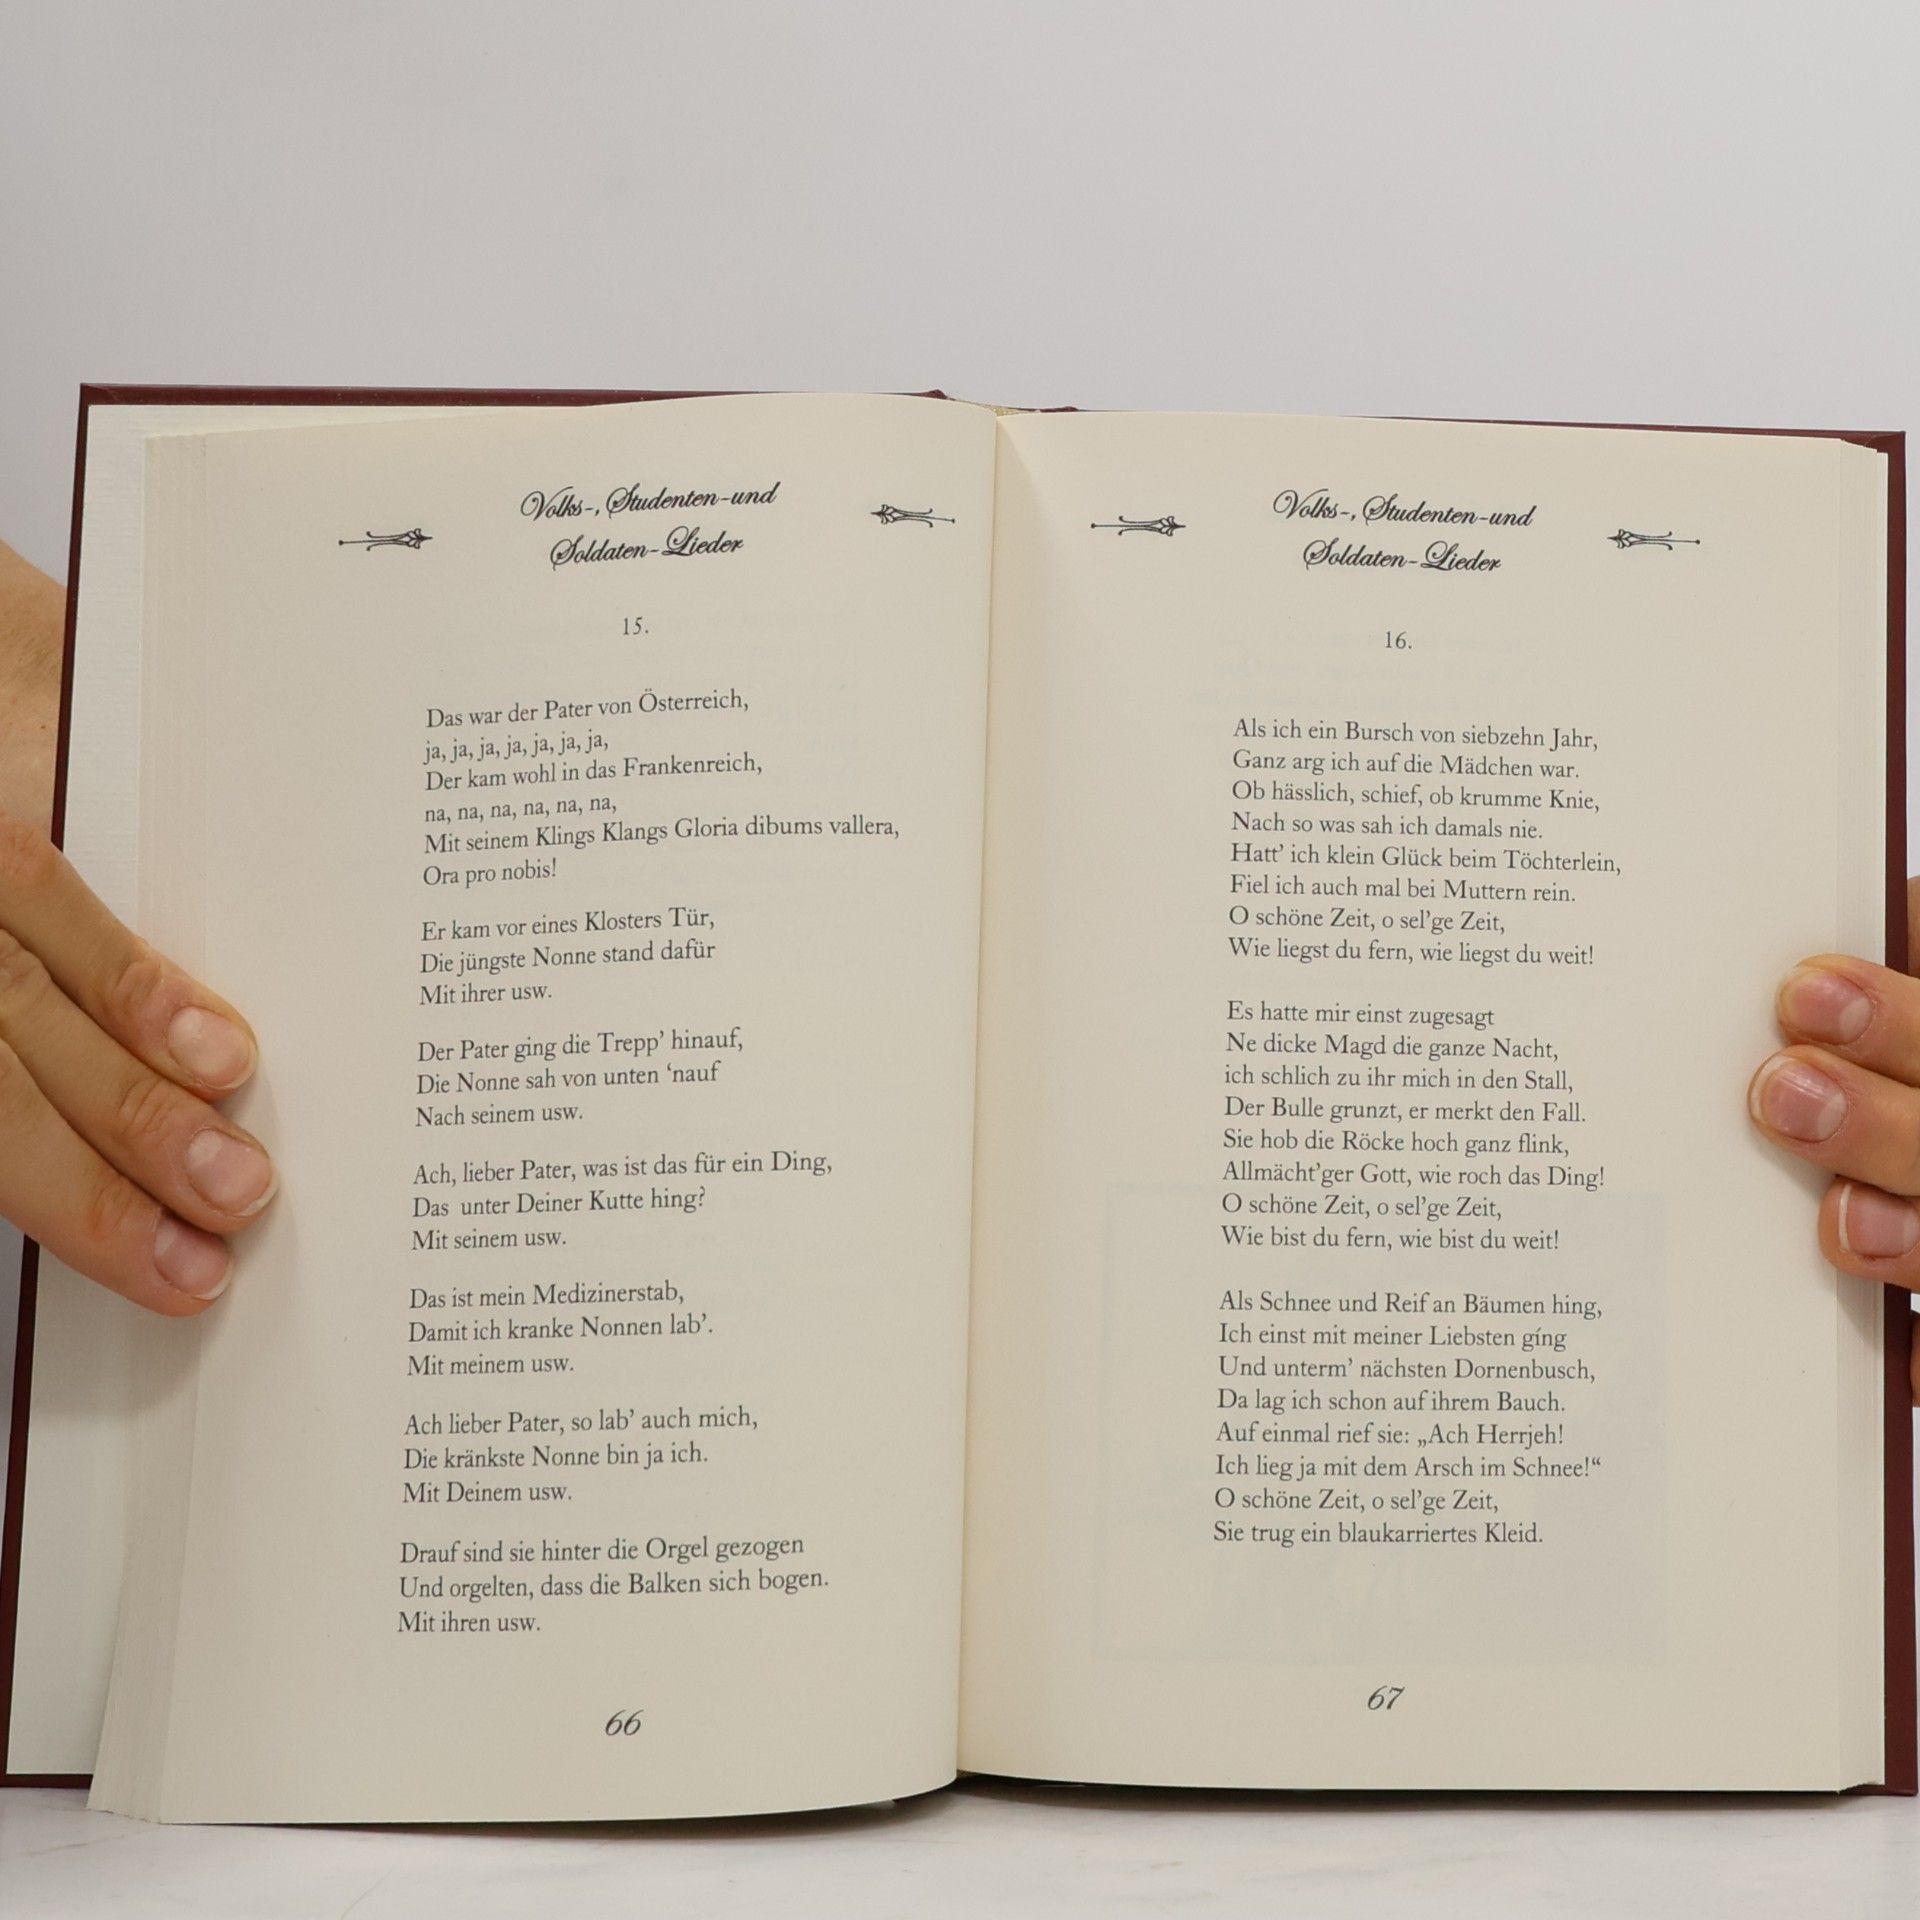 Volks-, Studenten-und
Soldaten-Lieder
15.
Das war der Pater von Österreich,
ja, ja, ja, ja, ja, ja, ja,
Der kam wohl in das Frankenreich,
na, na, na, na, na, na,
Mit seinem Klings Klangs Gloria dibums vallera,
Ora pro nobis!
Er kam vor eines Klosters Tür,
Die jüngste Nonne stand dafür
Mit ihrer usw.
Der Pater ging die Trepp’ hinauf,
Die Nonne sah von unten ‘nauf
Nach seinem usw.
Ach, lieber Pater, was ist das für ein Ding,
Das unter Deiner Kutte hing?
Mit seinem usw.
Das ist mein Medizinerstab,
Damit ich kranke Nonnen lab’.
Mit meinem usw.
Ach lieber Pater, so lab’ auch mich,
Die kränkste Nonne bin ja ich.
Mit Deinem usw.
Drauf sind sie hinter die Orgel gezogen
Und orgelten, dass die Balken sich bogen.
Mit ihren usw.
66
Volks-, Studenten-und
Soldaten-Lieder
16.
Als ich ein Bursch von siebzehn Jahr,
Ganz arg ich auf die Mädchen war.
Ob hässlich, schief, ob krumme Knie,
Nach so was sah ich damals nie.
Hatt’ ich klein Glück beim Töchterlein,
Fiel ich auch mal bei Muttern rein.
O schöne Zeit, o sel’ge Zeit,
Wie liegst du fern, wie liegst du weit!
Es hatte mir einst zugesagt
Ne dicke Magd die ganze Nacht,
ich schlich zu ihr mich in den Stall,
Der Bulle grunzt, er merkt den Fall.
Sie hob die Röcke hoch ganz flink,
Allmächt’ger Gott, wie roch das Ding!
O schöne Zeit, o sel’ge Zeit,
Wie bist du fern, wie bist du weit!
Als Schnee und Reif an Bäumen hing,
Ich einst mit meiner Liebsten gíng
Und unterm’ nächsten Dornenbusch,
Da lag ich schon auf ihrem Bauch.
Auf einmal rief sie: „Ach Herrjeh!
Ich lieg ja mit dem Arsch im Schnee!“
O schöne Zeit, o sel’ge Zeit,
Sie trug ein blaukarriertes Kleid.
67